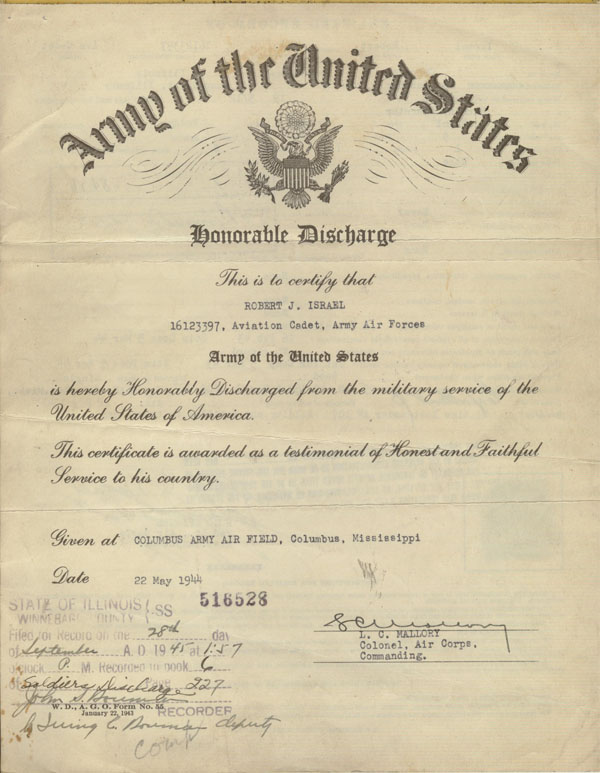 Army of the United States
Honorable Discharge
This is to certify that
ROBERT J. ISRAEL
16123397, Aviation Cadet, Army Air Forces
Army of the United States
is hereby Honorably Discharged from the military service of the
United States of America.
This certificate is awarded as a testimonial of Honest and Faithful
Service to his country.
Given at COLUMBUS ARMY AIR FIELD, Columbus, Mississippi
Date 22 May 1944
STATE OF ILLINOIS SS 516528
WINNEBAGO COUNTY
Filed for Record on the 28th day
of September A. D. 1945 at 1:57
o'clock P. M. Recorded in book 6
of Soldiers Discharge 227
John S.
W. D., A. G. O. Form No. 55
January 22, 1943
RECORDER
By Irving C. Bowman deputy
Comp
L. C. MALLORY
Colonel, Air Corps,
Commanding.